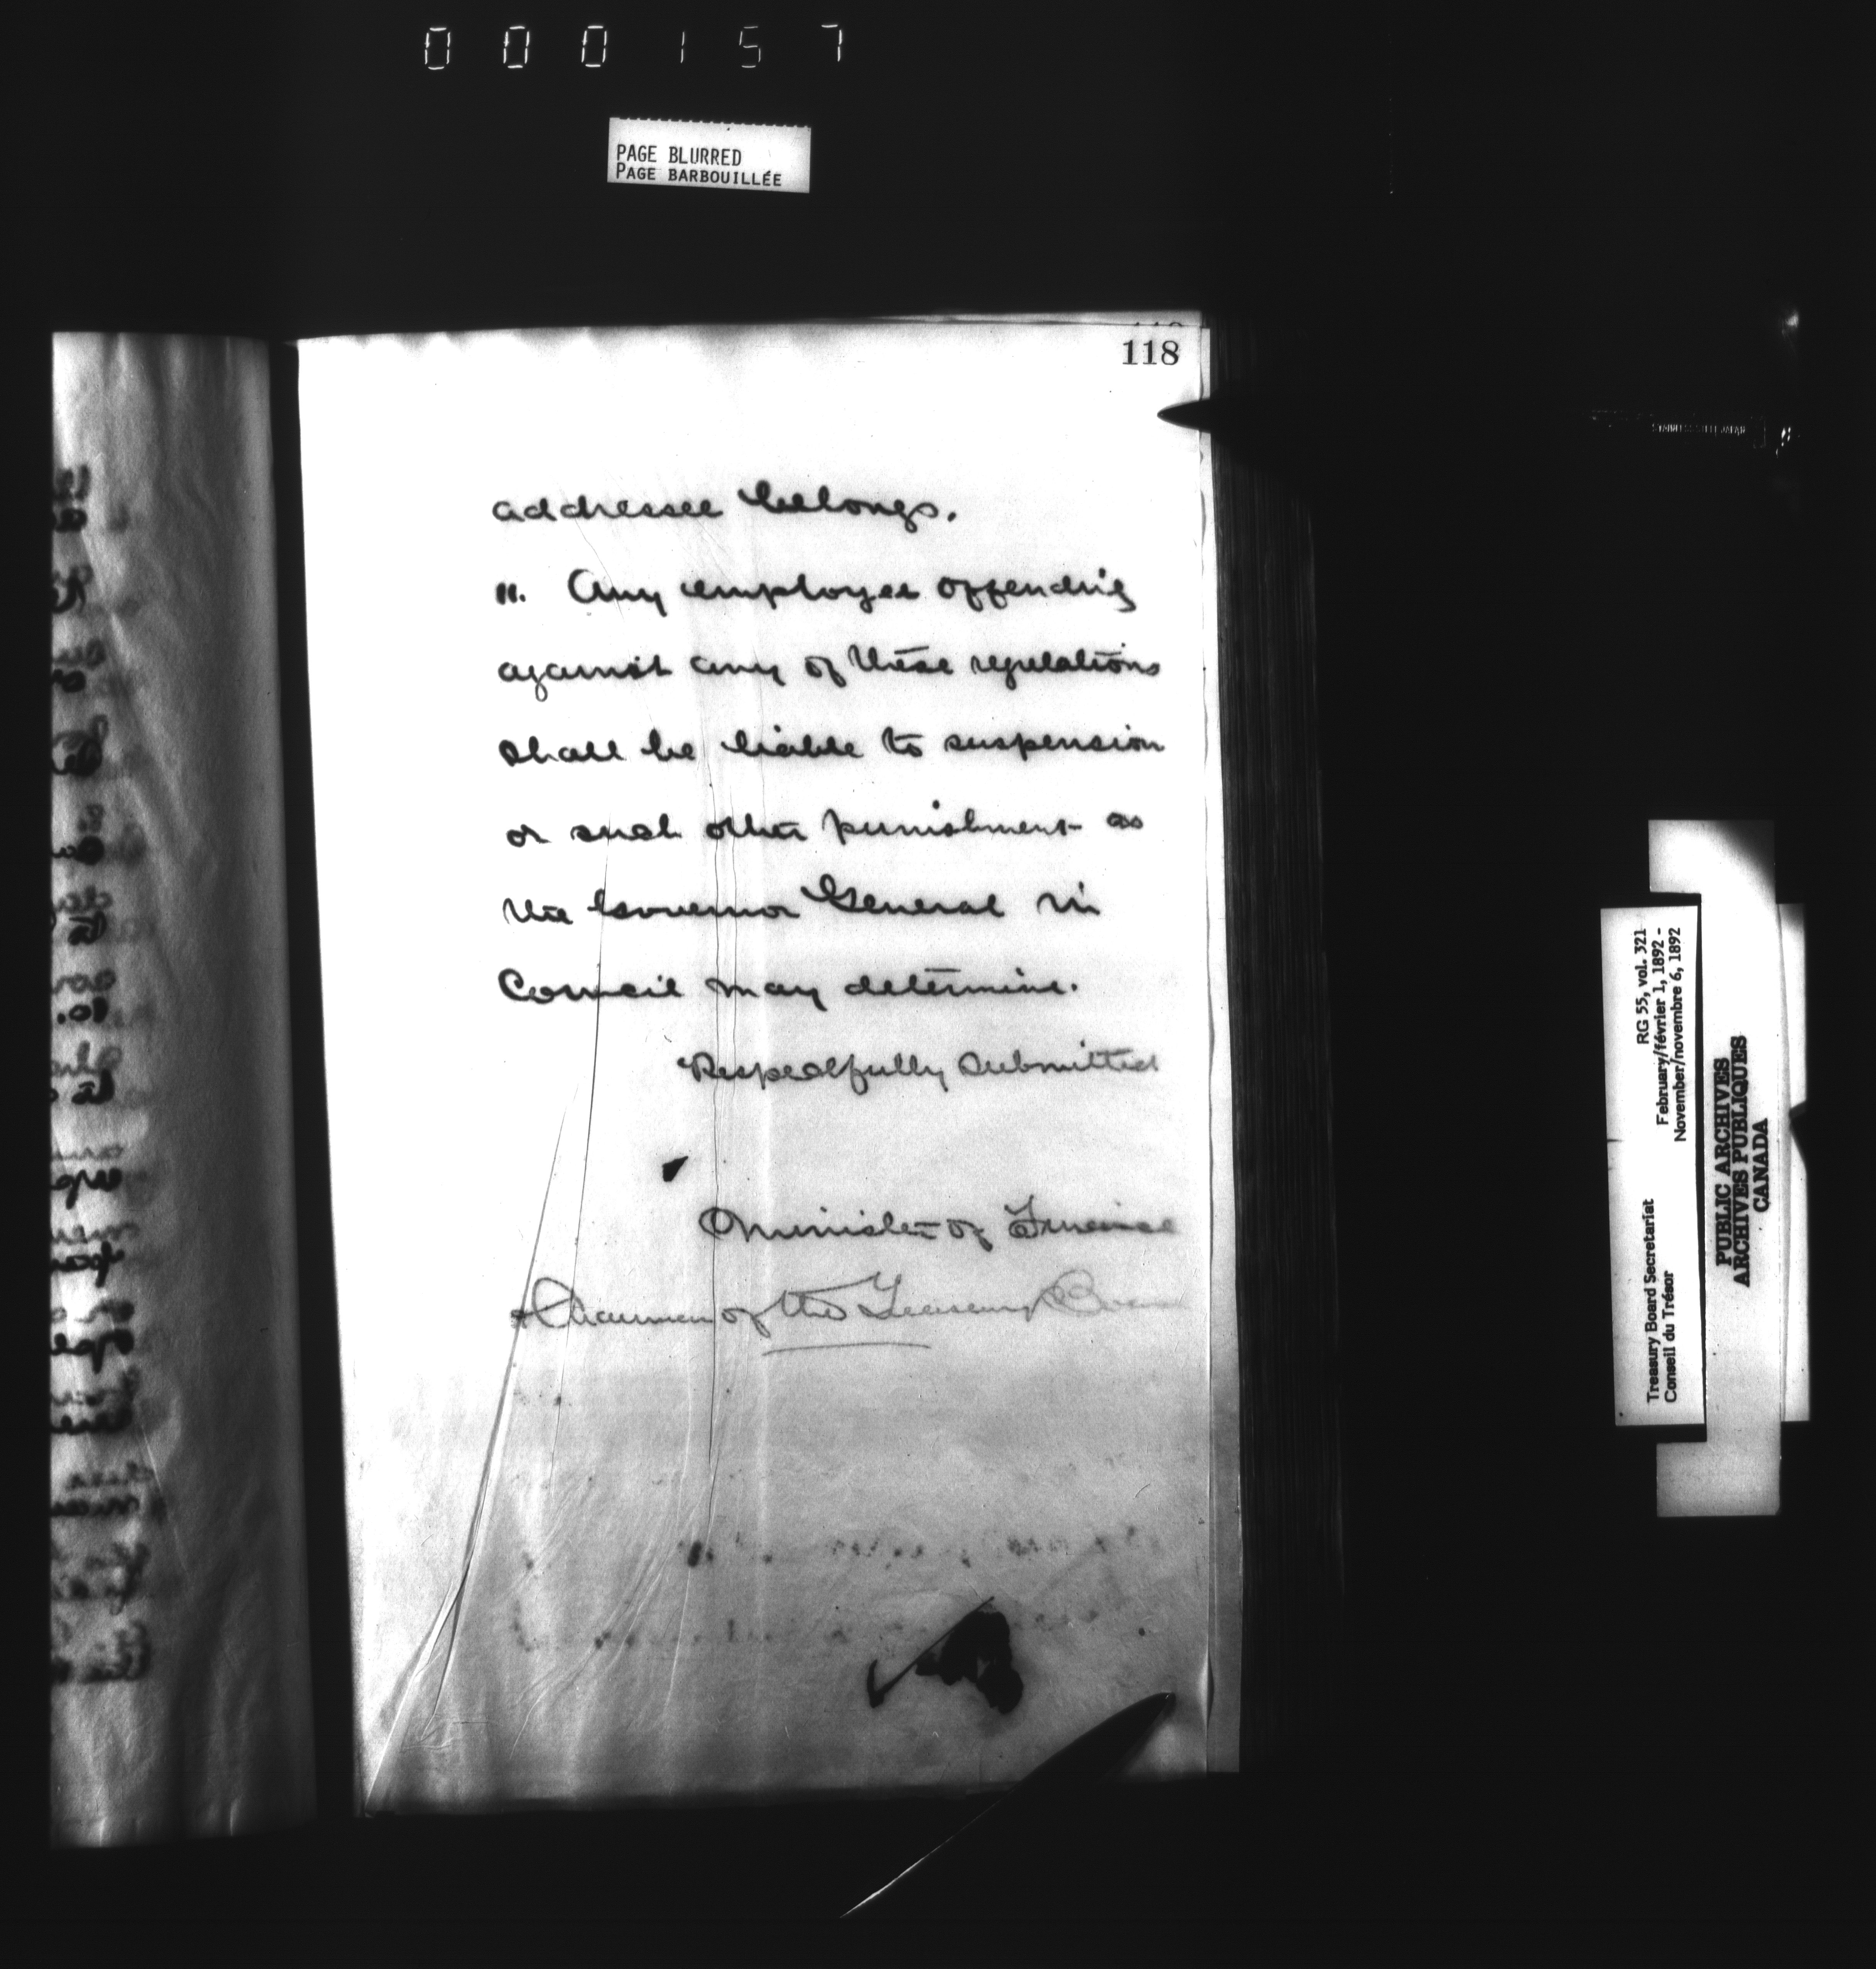 000157
PAGE BLURRED
PAGE BARBOUILLÉE
118
addressee belongs.
11. Any employee offending
against any of these regulations
shall be liable to suspension
or such other punishment as
the Governor General in
Council may determine.
Respectfully submitted
Minister of Finance
& Chairman of the Treasury Board
RG 55, vol. 321
February/février 1, 1892 -
November/novembre 6, 1892
Treasury Board Secretariat
Conseil du Trésor
PUBLIC ARCHIVES
ARCHIVES PUBLIQUES
CANADA